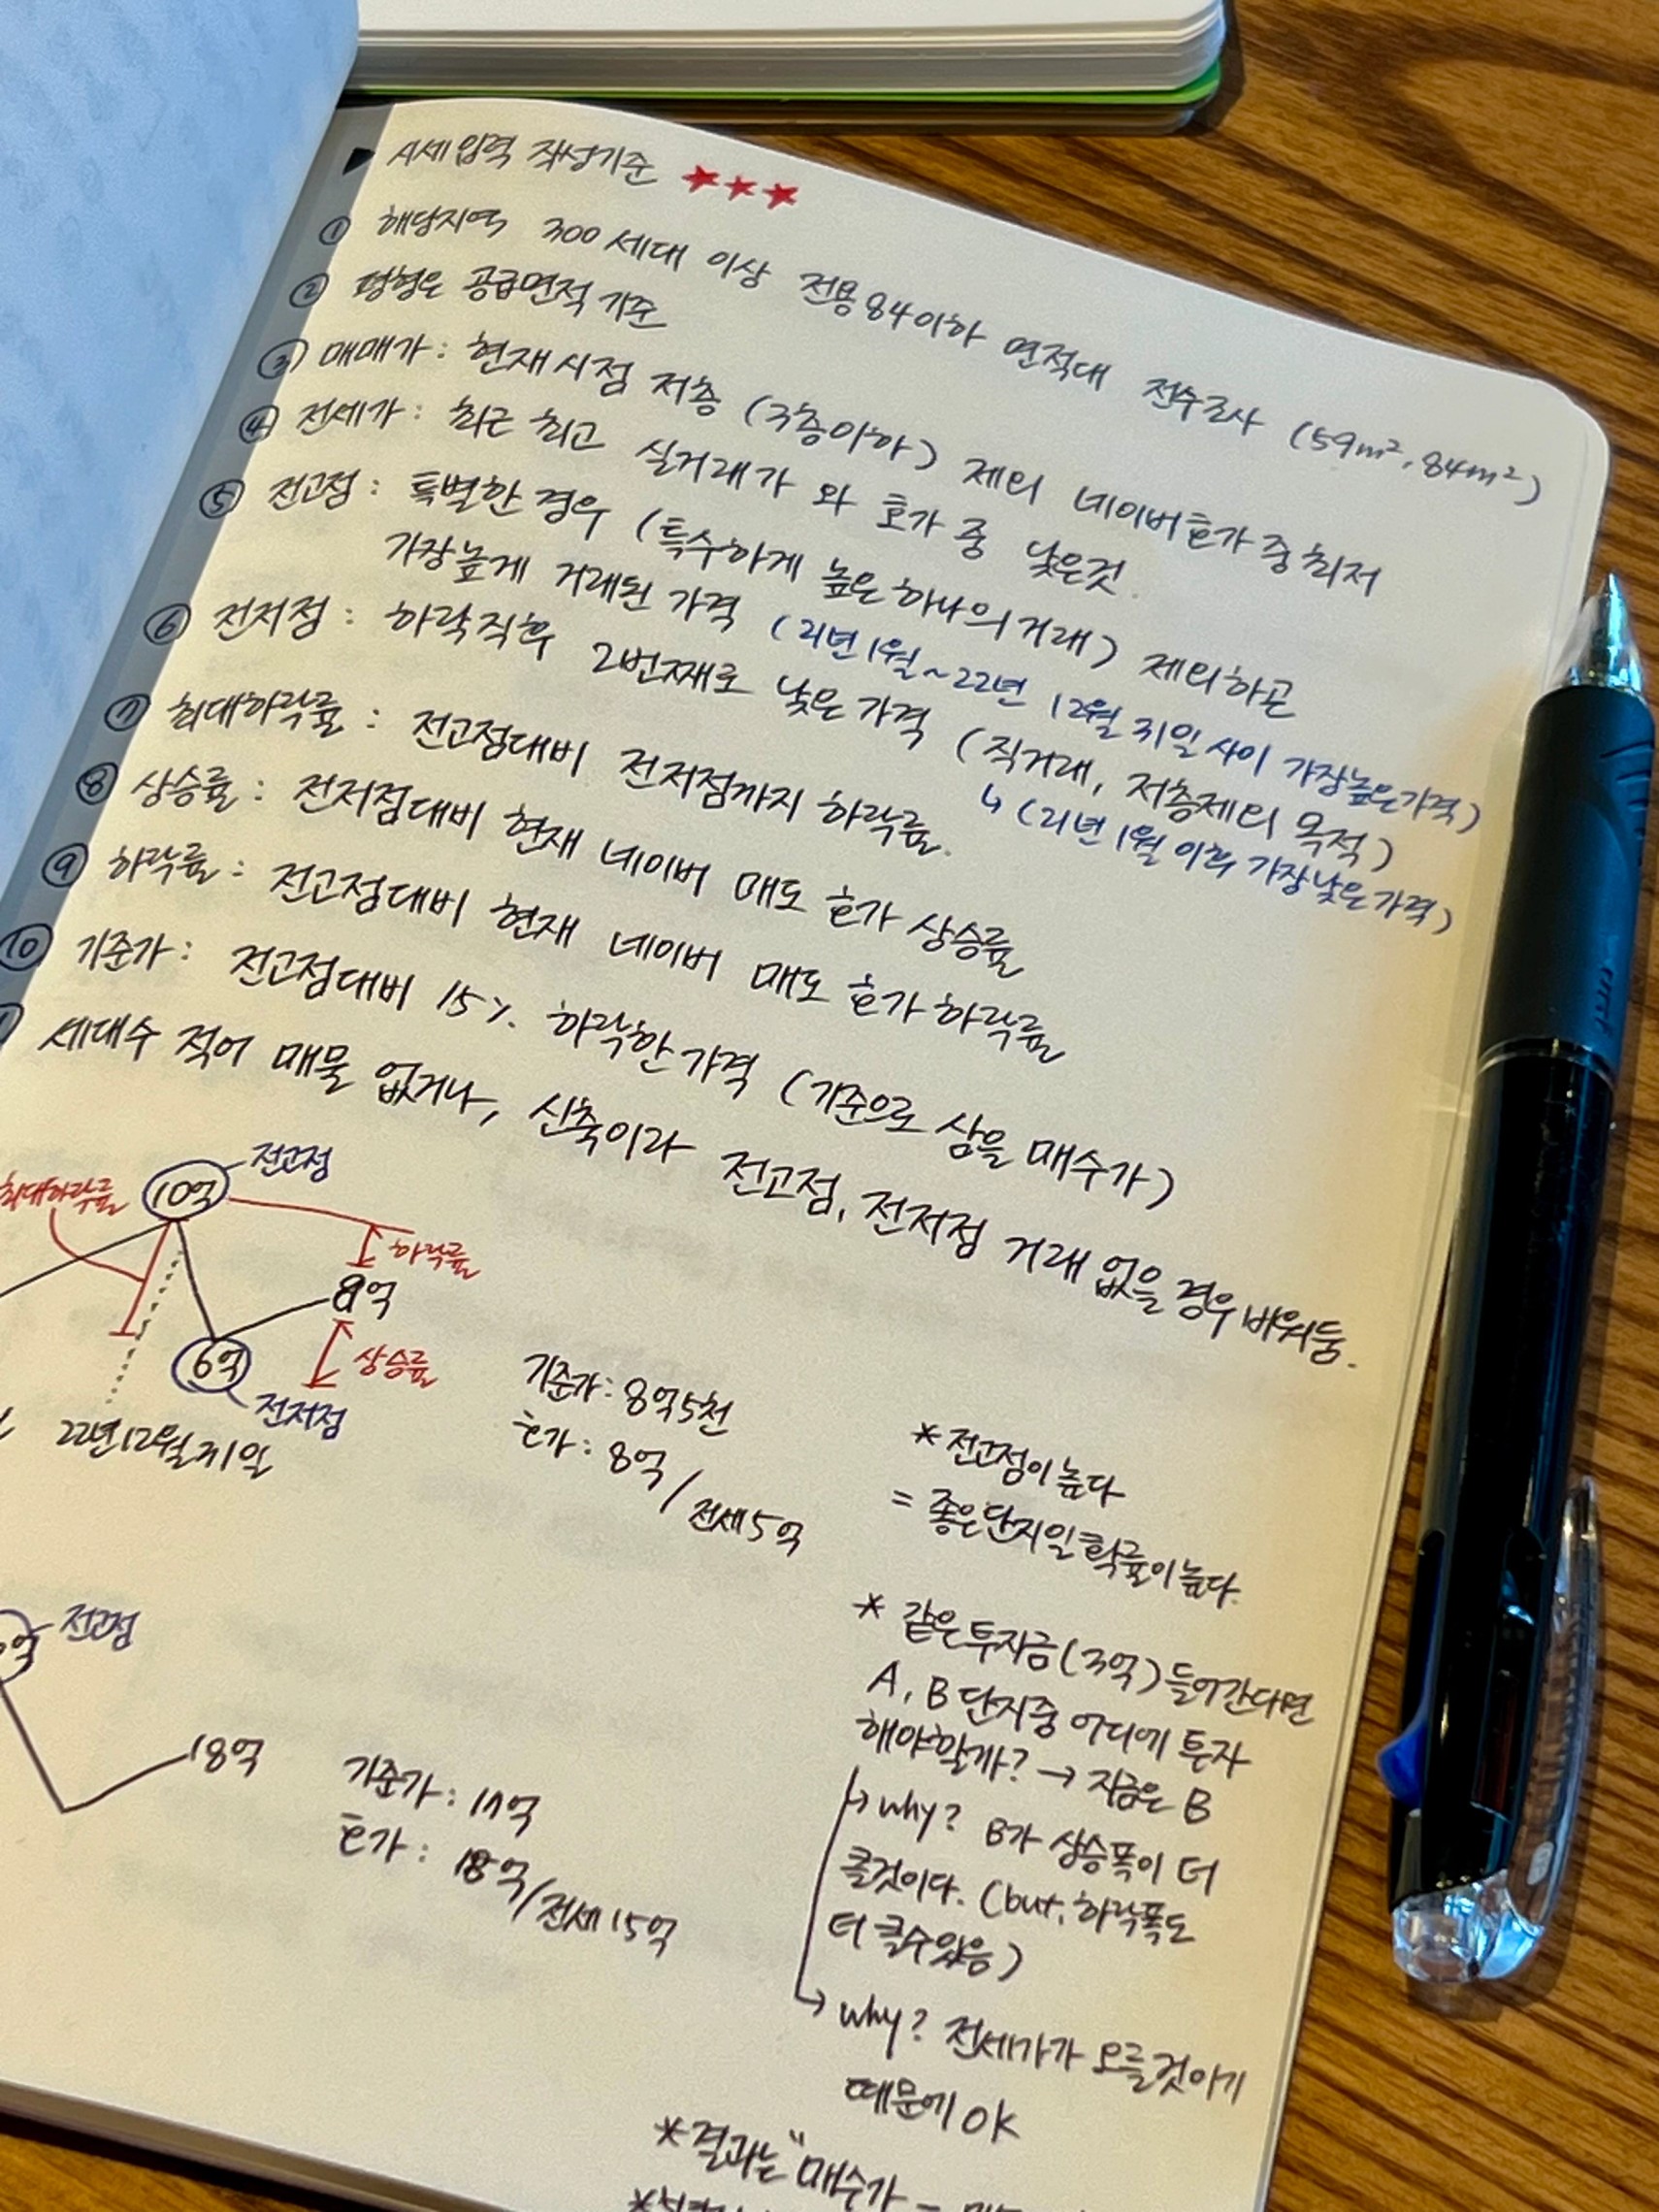 ▶ A세입력 작성기준 ★★★
① 해당지역 300세대 이상 전용84이하 면적대 전수조사 (59m², 84m²)
② 평형은 공급면적 기준
③ 매매가 : 현재시점 저층 (3층이하) 제외 네이버호가 중 최저
④ 전세가 : 최근 최고 실거래가 와 호가 중 낮은것.
⑤ 전고점 : 특별한 경우 (특수하게 높은 하나의 거래) 제외하곤
가장높게 거래된 가격 (21년 1월~22년 12월 31일 사이 가장높은가격)
⑥ 전저점 : 하락직후 2번째로 낮은 가격 (직거래, 저층제외 목적)
↳ (21년 1월 이후 가장낮은가격)
⑦ 최대하락률 : 전고점대비 전저점까지 하락률.
⑧ 상승률 : 전저점대비 현재 네이버 매도 호가 상승률
⑨ 하락률 : 전고점대비 현재 네이버 매도 호가 하락률
⑩ 기준가 : 전고점대비 15% 하락한 가격 (기준으로 삼을 매수가)
세대수 적어 매물 없거나, 신축이라 전고점, 전저점 거래 없을 경우 비워둠.
최대하락률
10억
전고점
하락률
8억
6억
상승률
전저점
22년12월31일
기준가 : 8억5천
호가 : 8억 / 전세5억
* 전고점이 높다
= 좋은단지일 확률이 높다.
전고점
18억
기준가 : 17억
호가 : 18억 / 전세 15억
* 같은 투자금 (3억) 들어간다면
A, B 단지중 어디에 투자
해야할까? → 지금은 B
↳ why? B가 상승폭이 더
클것이다. (but, 하락폭도
더 클수있음)
↳ why? 전세가가 오를것이기
때문에 OK
* 결과는 "매수가 -